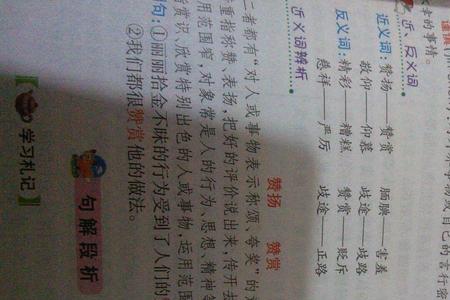 及自己的言行密
的事情。
近、反义词
近义词:赞扬——赞赏 腼腆——害羞
敬仰——仰慕 歧途——歧路
反义词:精彩——糟糕 赞赏——贬斥
慈祥——严厉 歧途——正路
近义词辨析
赞扬 赞赏
二者都有“对人或事物表示称颂、夸奖”的
重指称赞、表扬,把好的评价说出来,传开去
用范围窄,对象常是人的行为、思想、精神等
赏识、欣赏特别出色的人或事物,运用范围
句:①丽丽拾金不昧的行为受到了人们的
②我们都很赞赏他的做法。
句解段析
【学习札记】